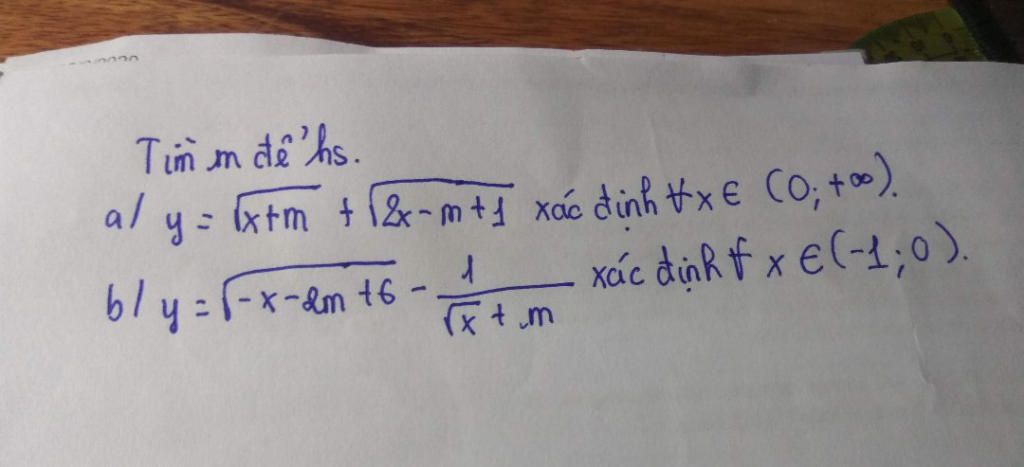 Tìm m để hs.
a/ y = √(x+m) + √(2x-m+1) xác định ∀x ∈ (0;+∞).
b/ y = √(-x-2m+6) - 1/(√x + m) xác định ∀ x ∈ (-1;0).